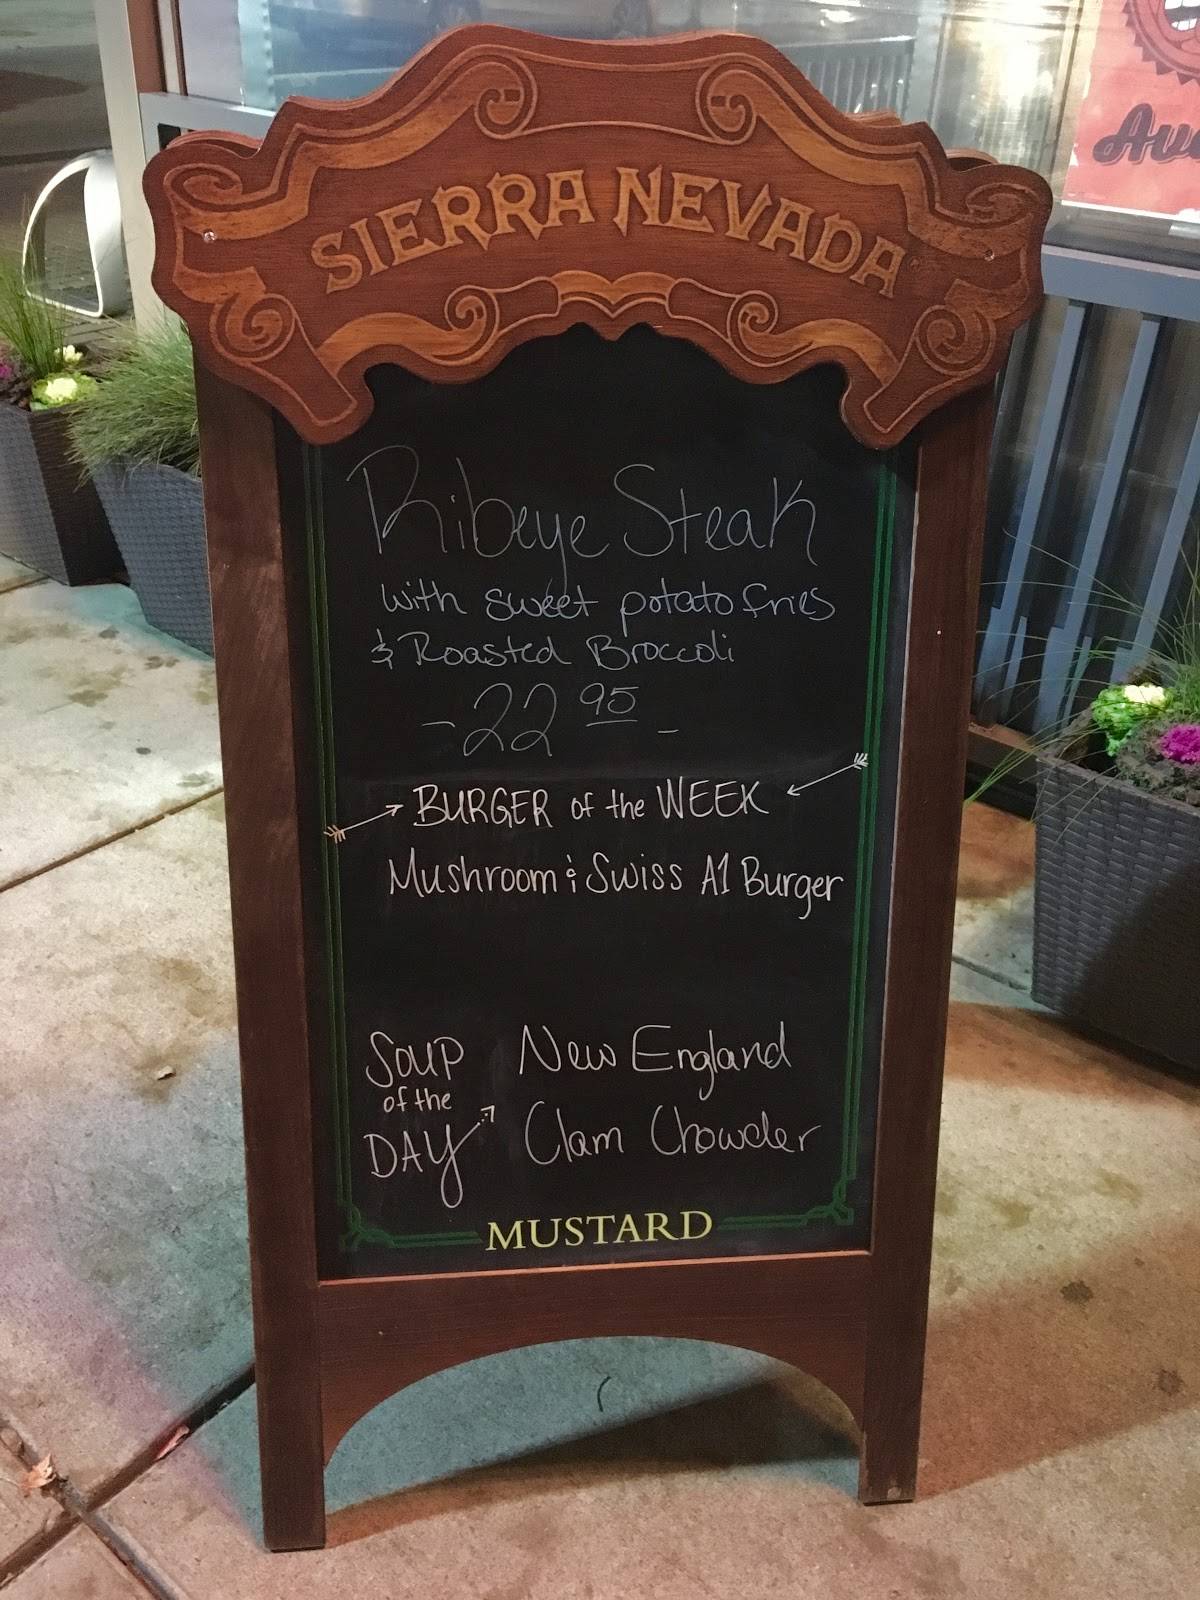 SIERRA NEVADA
Au
Ribeye Steak
with sweet potato fries
& Roasted Broccoli
- 22 95 -
BURGER of the WEEK
Mushroom & Swiss A1 Burger
SOUP
of the
DAY
New England
Clam Chowder
MUSTARD